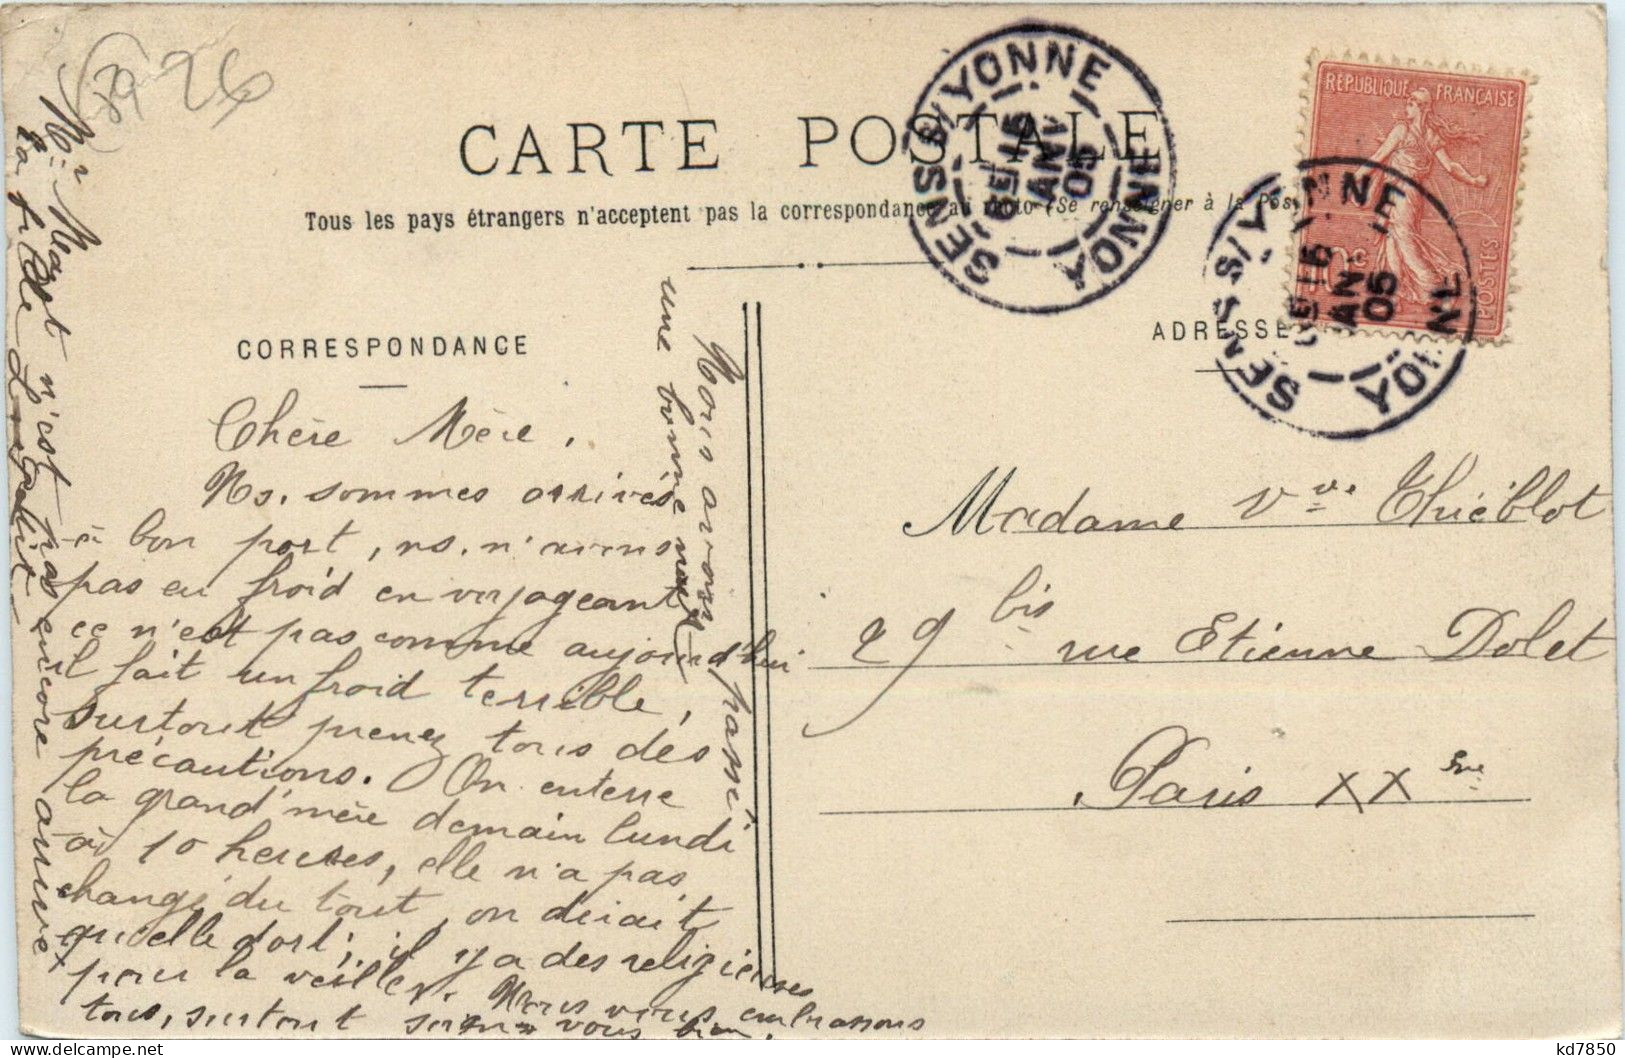 (89) 26
CARTE POSTALE
Tous les pays étrangers n'acceptent pas la correspondance au recto (Se renseigner à la Pos
RÉPUBLIQUE FRANÇAISE
10c POSTES
SENS S/YONNE
15
JANV
05
YONNE
SENS S/YONNE
15
JANV
05
YONNE
CORRESPONDANCE
ADRESSE
Chère Mère,
Ns. sommes arrivés
à bon port, ns. n'avons
pas eu froid en voyageant
ce n'est pas comme aujourd'hui
il fait un froid terrible,
surtout prenez tous des
précautions. On enterre
la grand'mère demain lundi
à 10 heures, elle n'a pas
changé du tout, on dirait
qu'elle dort; il y a des religieuses
pour la veiller. Nous vous embrassons
tous, surtout soignez vous bien.
Nous avons passé
une bonne nuit
Mr Magot n'est pas encore arrivé
la fille
Madame Vve Thiéblot
29 bis rue Etienne Dolet
Paris XXème
kd7850